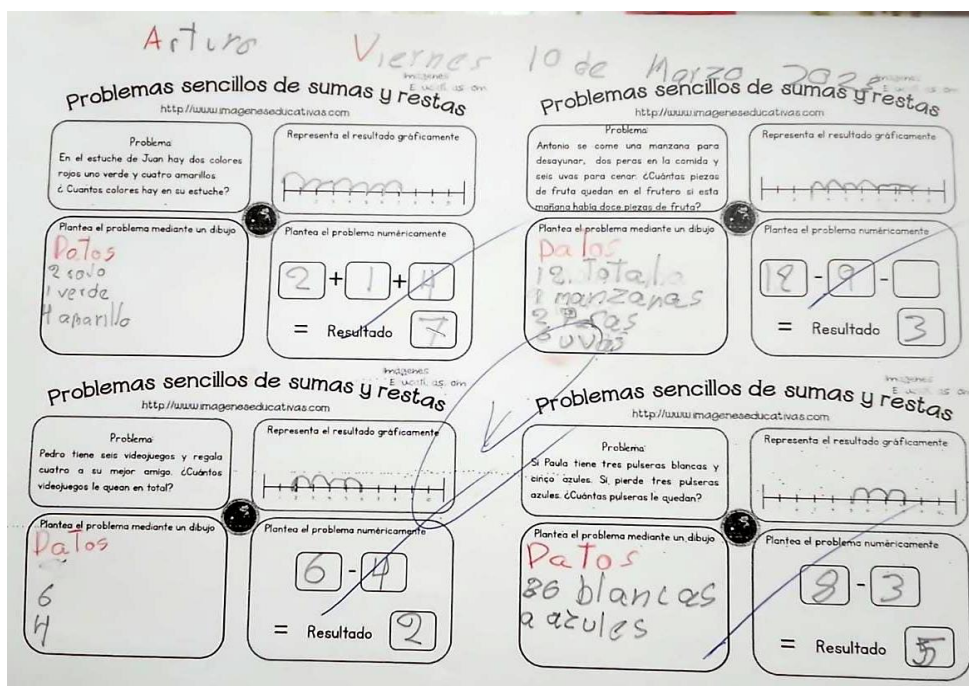 Arturo Viernes 10 de Marzo
Problemas sencillos de sumas y restas
http://www.imageneseducativas.com
Problema
En el estuche de Juan hay dos colores
rojos uno verde y cuatro amarillos
¿ Cuantos colores hay en su estuche?
Representa el resultado gráficamente
Plantea el problema mediante un dibujo
Datos
1 verde
4 amarillo
Plantea el problema numéricamente
2 + 1 + 4
= Resultado 7
Problemas sencillos de sumas y restas
http://www.imageneseducativas.com
Problema
Antonio se come una manzana para
desayunar, dos peras en la comida y
seis uvas para cenar. ¿Cuántas piezas
de fruta quedan en el frutero si esta
mañana había doce piezas de fruta?
Representa el resultado gráficamente
Plantea el problema mediante un dibujo
Datos
manzanas
uvas
Plantea el problema numéricamente
12 - 9 -
= Resultado 3
Problemas sencillos de sumas y restas
http://www.imageneseducativas.com
Problema
Pedro tiene seis videojuegos y regala
cuatro a su mejor amigo. ¿Cuántos
videojuegos le quean en total?
Representa el resultado gráficamente
Plantea el problema mediante un dibujo
Datos
6
4
Plantea el problema numéricamente
6 - 4
= Resultado 2
Problemas sencillos de sumas y restas
http://www.imageneseducativas.com
Problema
Si Paula tiene tres pulseras blancas y
cinço azules. Si, pierde tres pulseras
azules. ¿Cuántas pulseras le quedan?
Representa el resultado gráficamente
Plantea el problema mediante un dibujo
Datos
blancas
azules
Plantea el problema numéricamente
8 - 3
= Resultado 5